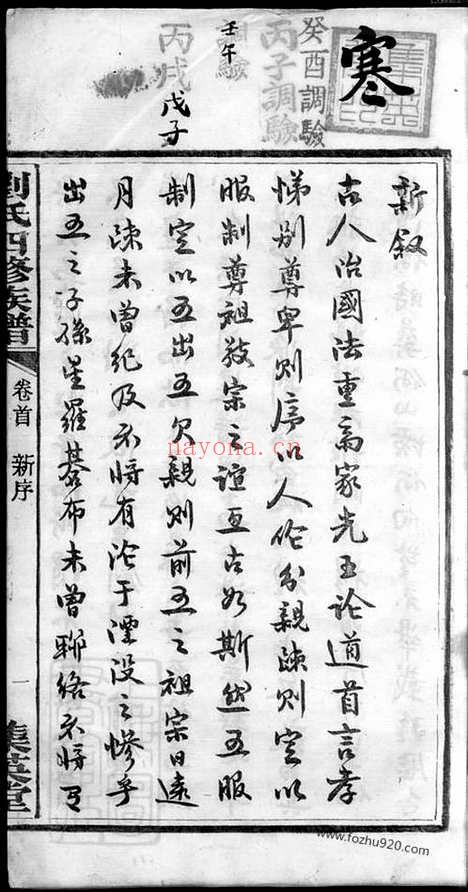 寒
癸酉調驗
丙子調驗
壬午
調驗
丙戌
戊子
新叙
古人治國法重爲家先王論道首言孝
悌別尊卑則序以人倫分親疎則定以
服制尊祖敬宗之誼亘古如斯然五服
制定以五出五為親則前五之祖宗日遠
月疎未曾紀及不將有淪于湮没之慘乎
出五之子孫星羅碁布未曾聯絡不將有
劉氏四修族譜
卷首
新序
一
集英堂
nayona.cn
www.fozhu920.com